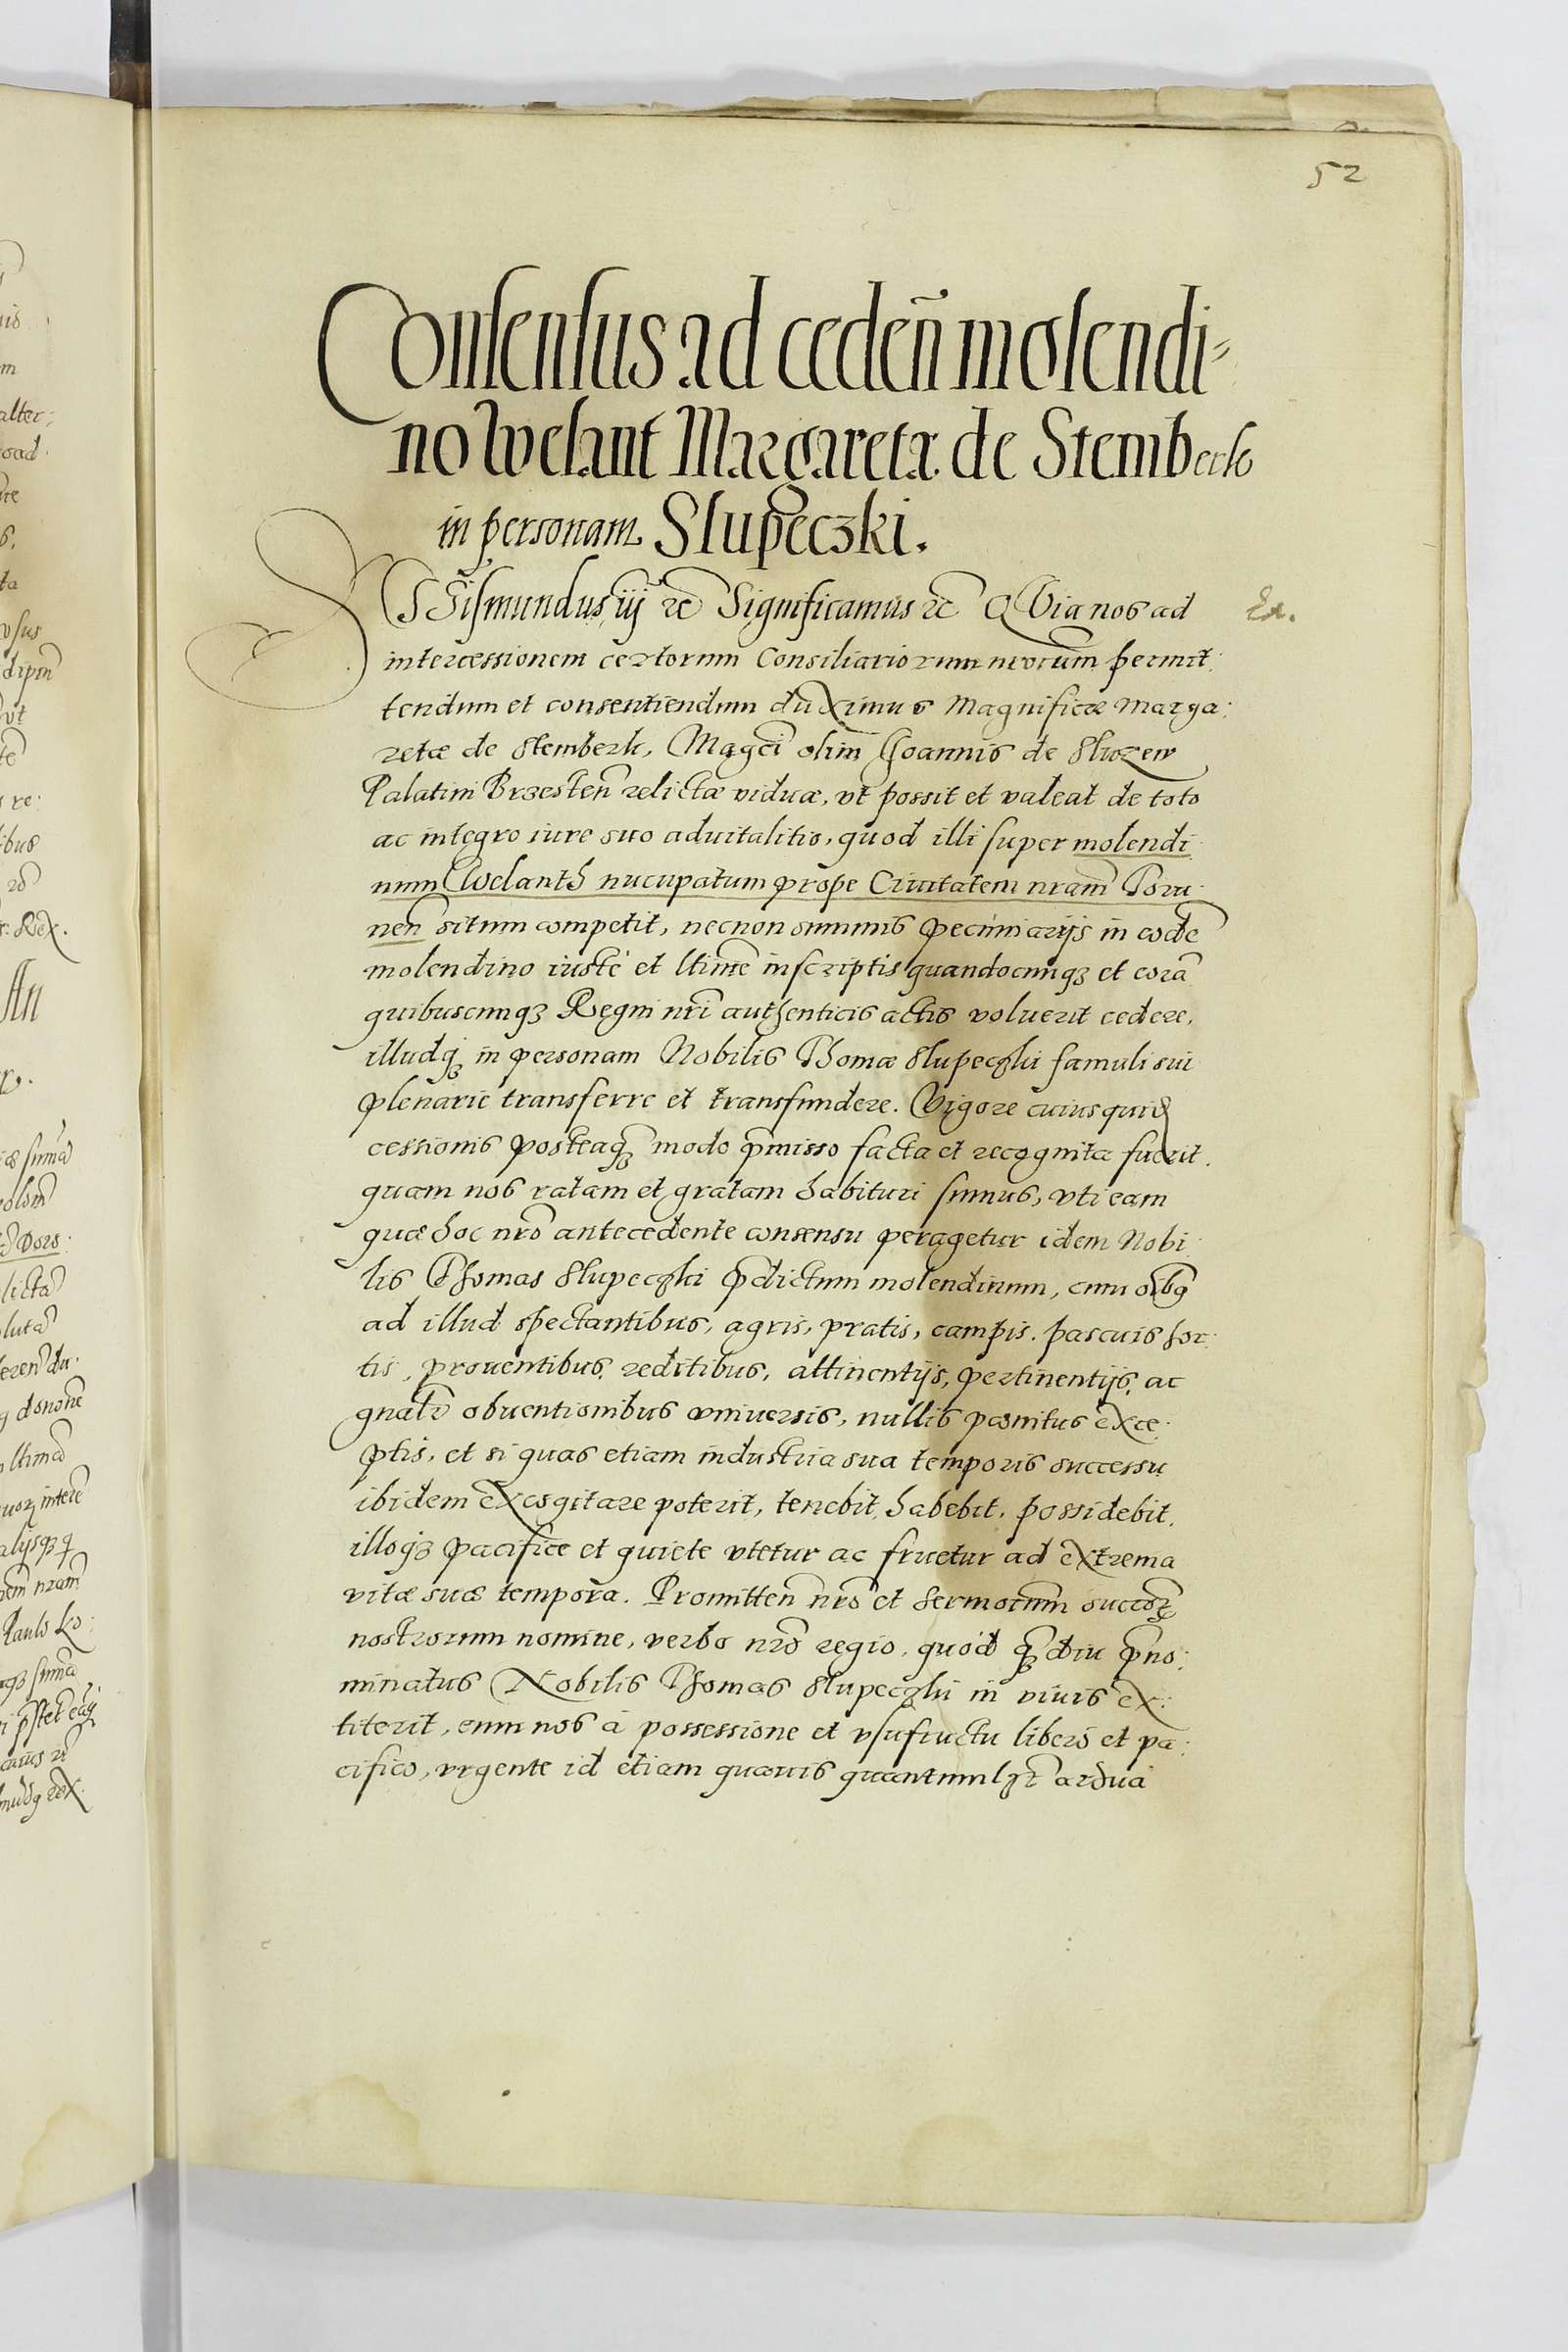 52
Consensus ad ceden̄ molendi=
no Welant Margareta de Stemberk
in personam Slupeczki.
Sigismundus iij etc̃ Significamus etc̃ Quia nos ad
Ex.
intercessionem certorum Consiliariorum nrorum permit:
tendum et consentiendum duximus Magnificæ Marga:
retæ de Stemberk, Magci olim Joannis de Sluzew
Palatini Brzesten̄ relictæ viduæ, vt possit et valeat de toto
ac integro iure suo aduitalitio, quod illi super molendi
num Welanth nucupatum prope Ciuitatem nram̄ Toru:
nen̄ situm competit, necnon summis pecuniarijs in eodē
molendino iustè et ltime inscriptis quandocunqз et corā
quibuscunqз Regni nri authenticis actis voluerit cedere,
illudqз in personam Nobilis Thomæ Slupeczki famuli sui
plenarie transferre et transfundere. Vigore cuius quid̄
cessionis posteaqз modo p̄misso facta et recognita fuerit.
quam nos ratam et gratam habituri sumus, vti eam
quæ hoc nrō antecedente consensu peragetur idem Nobi
lis Thomas Slupeczki p̄dictum molendinum, cum oībg
ad illud spectantibus, agris, pratis, campis, pascuis hor:
tis, prouentibus, reditibus, attinentijs, pertinentijs, ac
gnalr̄ obuentionibus vniuersis, nullis pœnitus exce:
ptis, et si quas etiam industria sua temporis successu
ibidem excogitare poterit, tenebit, habebit, possidebit,
illoqз pacifice et quiete vtetur ac fruetur ad extrema
vitæ suæ tempora. Promitten̄ nrō et Sermorum succor̄
nostrorum nomine, verbo nrō regio, quòd qз diu p̄no:
minatus Nobilis Thomas Slupeczki in viuis ex:
titerit, eum nos à possessione et vsufructu libero et pa:
cifico, vrgente id etiam quauis quantumlзr̄ ardua